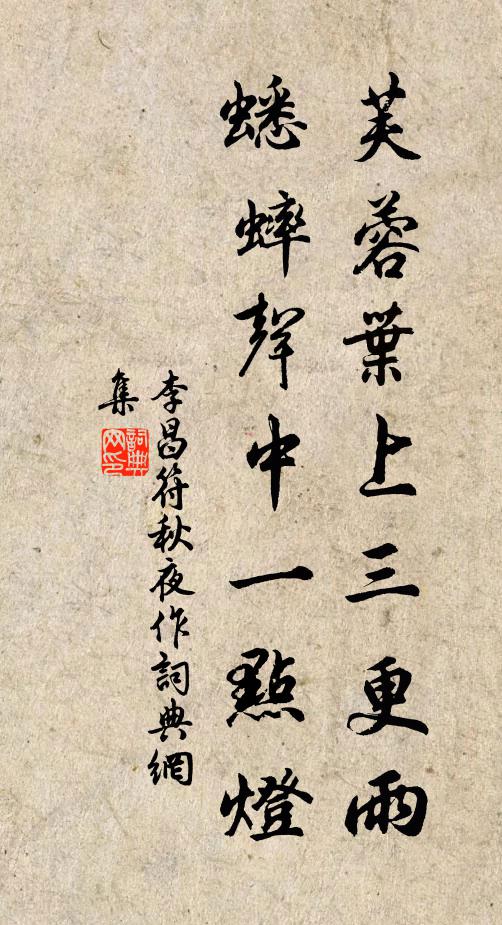 芙蓉葉上三更雨
蟋蟀聲中一點燈
李昌符秋夜作詞典網
集
詞典
网印